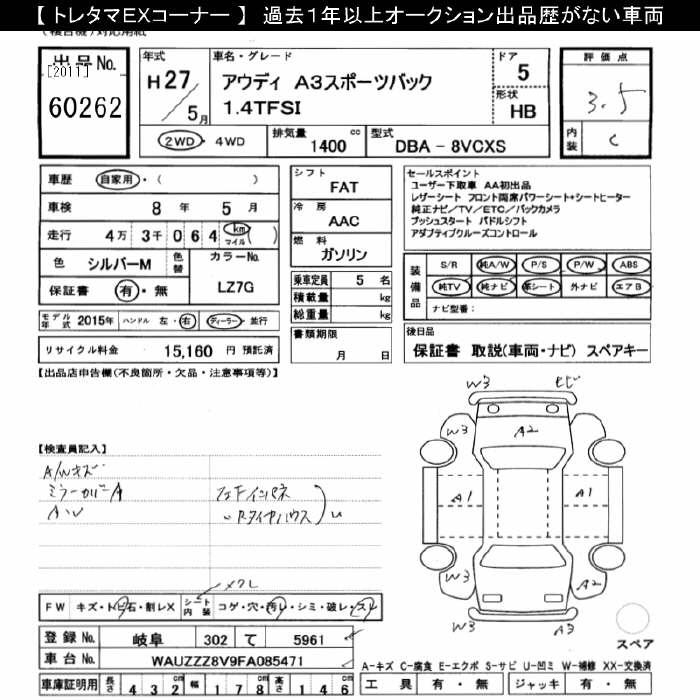 【 トレタマEXコーナー 】 過去1年以上オークション出品歴がない車両
出品No.
[2011]
60262
年式
H27/5月
車名・グレード
アウディ A3スポーツバック
1.4TFSI
ドア
5
形状
HB
評価点
3.5
内装
C
2WD・4WD
排気量
1400 cc
型式
DBA - 8VCXS
車歴 自家用・( )
車検 8年 5月
走行 4万3千064 km マイル ( )
色 シルバーM
色替
カラーNo.
LZ7G
保証書 有・無
モデル年式 2015年 ハンドル 左・右 ディーラー・並行
リサイクル料金 15,160 円 預託済
シフト
FAT
冷房
AAC
燃料
ガソリン
乗車定員 5 名
積載量 kg
総重量 kg
書類期限
月 日
セールスポイント
ユーザー下取車 AA初出品
レザーシート フロント両席パワーシート+シートヒーター
純正ナビ/TV/ETC/バックカメラ
プッシュスタート パドルシフト
アダプティブクルーズコントロール
装備品
S/R 純A/W P/S P/W ABS
純TV 純ナビ 革シート 外ナビ エアB
ナビ型番:
後日品
保証書 取説(車両・ナビ) スペアキー
【出品店申告欄(不良箇所・欠品・注意事項等)】
【検査員記入】
A/Wキズ
ミラーカバーA
フロアインパネ
Rタイヤハウス
W3
W3
A2
W3
A1
A1
A2
W3
A3
スペア
FW キズ・トビ石・割レX
シート内装
コゲ・穴・汚レ・シミ・破レ・スレ
登録No. 岐阜 302 て 5961
車台No. WAUZZZ8V9FA085471
車庫証明用 長さ 432cm 幅 178cm 高さ 146cm
A-キズ C-腐食 E-エクボ S-サビ U-凹ミ W-補修 XX-交換済
工具 有・無 ジャッキ 有・無